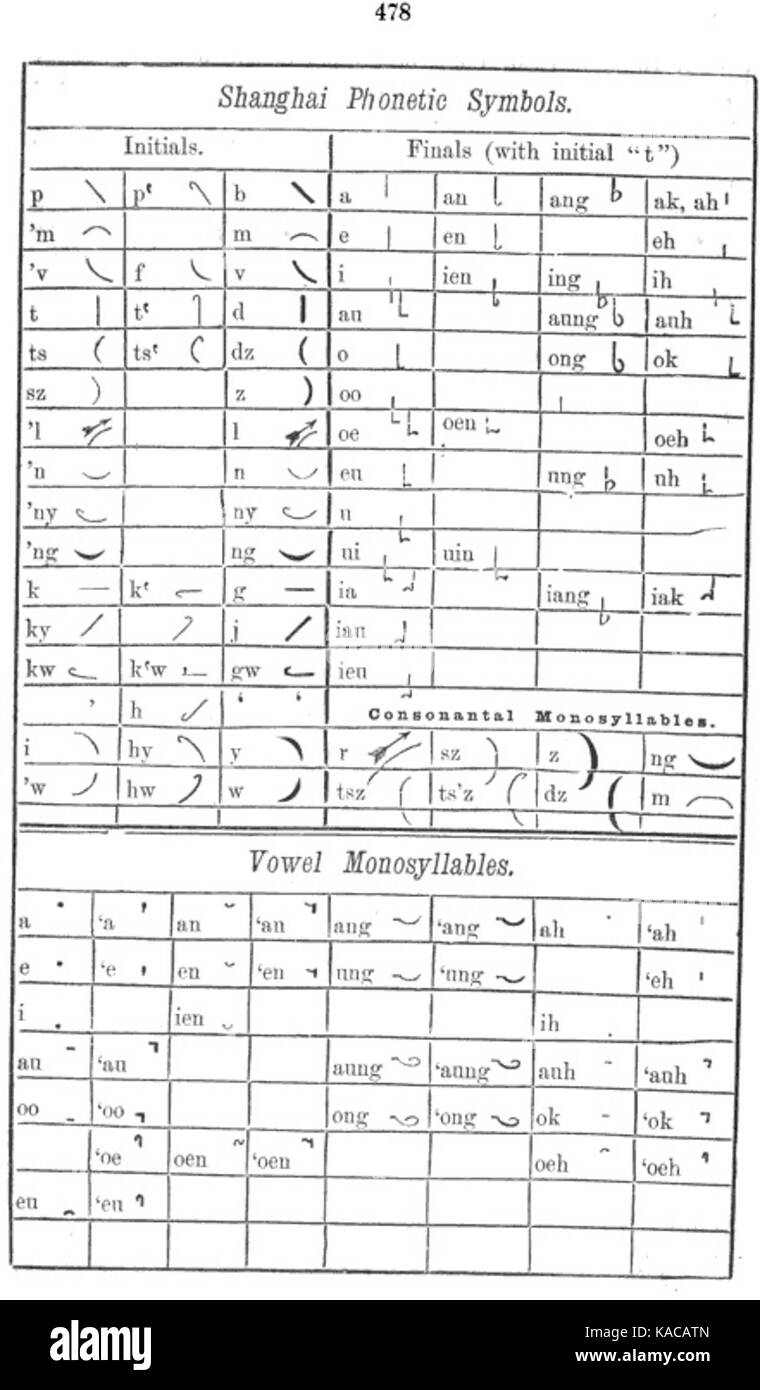 478
Shanghai Phonetic Symbols.
Initials. Finals (with initial “t”)
p pʻ b a an ang ak, ah
’m m e en eh
’v f v i ien ing ih
t tʻ d au aung auh
ts tsʻ dz o ong ok
sz z oo
’l l oe oen oeh
’n n eu ung uh
’ny ny u
’ng ng ui uin
k kʻ g ia iang iak
ky j iau
kw kʻw gw ieu
’ h ‘ ‘ Consonantal Monosyllables.
i hy y r sz z ng
’w hw w tsz ts’z dz m
Vowel Monosyllables.
a ‘a an ‘an ang ‘ang ah ‘ah
e ‘e en ‘en ung ‘ung ‘eh
i ien ih
au ‘au aung ‘aung auh ‘auh
oo ‘oo ong ‘ong ok ‘ok
‘oe oen ‘oen oeh ‘oeh
eu ‘eu
alamy
Image ID: KACATN
www.alamy.com